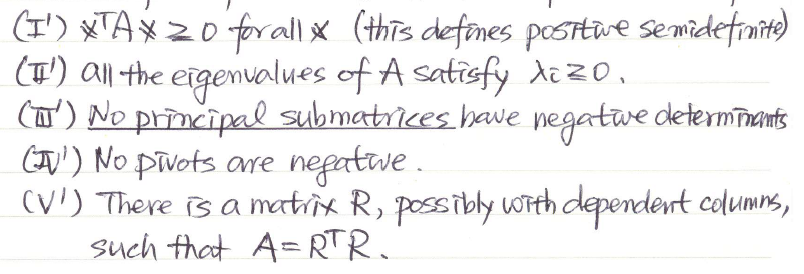 (I') xᵀAx ≥ 0 for all x (this defines positive semidefinite)
(II') all the eigenvalues of A satisfy λi ≥ 0.
(III') No principal submatrices have negative determinants
(IV') No pivots are negative.
(V') There is a matrix R, possibly with dependent columns,
such that A = RᵀR.